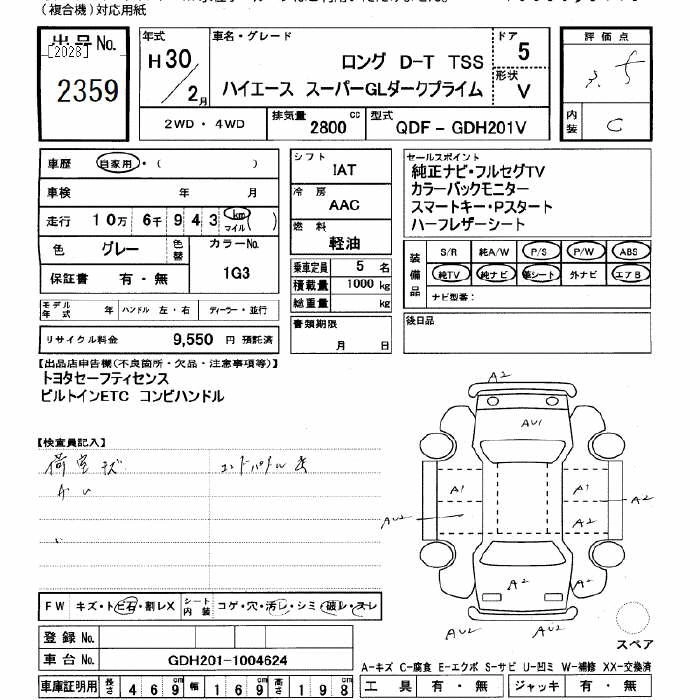 (複合機)対応用紙
出品No.
[2028]
2359
年式
H30
2月
車名・グレード
ロング D-T TSS
ハイエース スーパーGLダークプライム
ドア
5
形状
V
評価点
3.5
内装
C
2WD・4WD
排気量
2800 cc
型式
QDF-GDH201V
車歴 自家用・( )
車検 年 月
走行 10万 6千 9 4 3 km マイル( )
色 グレー
色替
カラーNo.
1G3
保証書 有・無
シフト
IAT
冷房
AAC
燃料
軽油
乗車定員 5 名
積載量 1000 kg
総重量 kg
セールスポイント
純正ナビ・フルセグTV
カラーバックモニター
スマートキー・Pスタート
ハーフレザーシート
装備品
S/R 純A/W P/S P/W ABS
純TV 純ナビ 革シート 外ナビ エアB
ナビ型番:
モデル年式 年 ハンドル 左・右 ディーラー・並行
リサイクル料金 9,550 円 預託済
書類期限
月 日
後日品
【出品店申告欄(不良箇所・欠品・注意事項等)】
トヨタセーフティセンス
ビルトインETC コンビハンドル
【検査員記入】
荷室キズ
A2
AU1
A1
A1
A2
A2
AU2
AU2
A2
A2
AU2
AU2
FW キズ・トビ石・割レX
シート内装 コゲ・穴・汚レ・シミ・破レ・スレ
登録No.
車台No. GDH201-1004624
車庫証明用 長さ 469cm 幅 169cm 高さ 198cm
スペア
A-キズ C-腐食 E-エクボ S-サビ U-凹ミ W-補修 XX-交換済
工具 有・無 ジャッキ 有・無